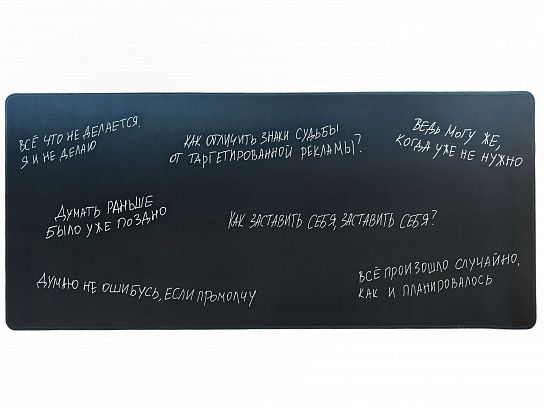 ВСЁ ЧТО НЕ ДЕЛАЕТСЯ,
Я И НЕ ДЕЛАЮ
КАК ОТЛИЧИТЬ ЗНАКИ СУДЬБЫ
ОТ ТАРГЕТИРОВАННОЙ РЕКЛАМЫ?
ВЕДЬ МОГУ ЖЕ,
КОГДА УЖЕ НЕ НУЖНО
ДУМАТЬ РАНЬШЕ
БЫЛО УЖЕ ПОЗДНО
КАК ЗАСТАВИТЬ СЕБЯ, ЗАСТАВИТЬ СЕБЯ?
ДУМАЮ НЕ ОШИБУСЬ, ЕСЛИ ПРОМОЛЧУ
ВСЁ ПРОИЗОШЛО СЛУЧАЙНО,
КАК И ПЛАНИРОВАЛОСЬ